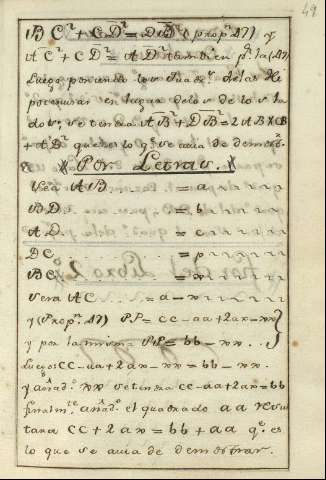 49
BC² + CD² = DB² (propⁿ 47) y
AC² + CD² = AD² tambien pʳ la (47
Luego poniendo los quadᵒˢ de las Hi
potenusas en lugar de los de los la
dos, se tendra AB² + DB² = 2AB×CB
+ AD² que es lo qᵉ se auia de demostrʳ.
Por Letras.
Sea AB = a
BD = b
AD = c
DC = p
BC = x
Sera AC = a - x
y (Propⁿ. 47) pp = cc - aa + 2ax - xx
y por la misma pp = bb - xx
Luego cc - aa + 2ax - xx = bb - xx.
y añadᵒ xx se tendra cc - aa + 2ax = bb
finalmᵗᵉ añadᵒ el quadrado aa resul
tara cc + 2ax = bb + aa qᵉ es
lo que se auia de demostrar.